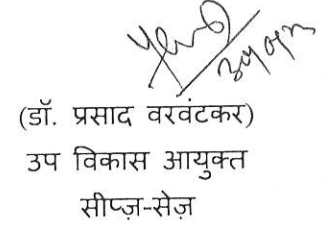 (डॉ. प्रसाद वरवंटकर)
उप विकास आयुक्त
सीप्ज़-सेज़